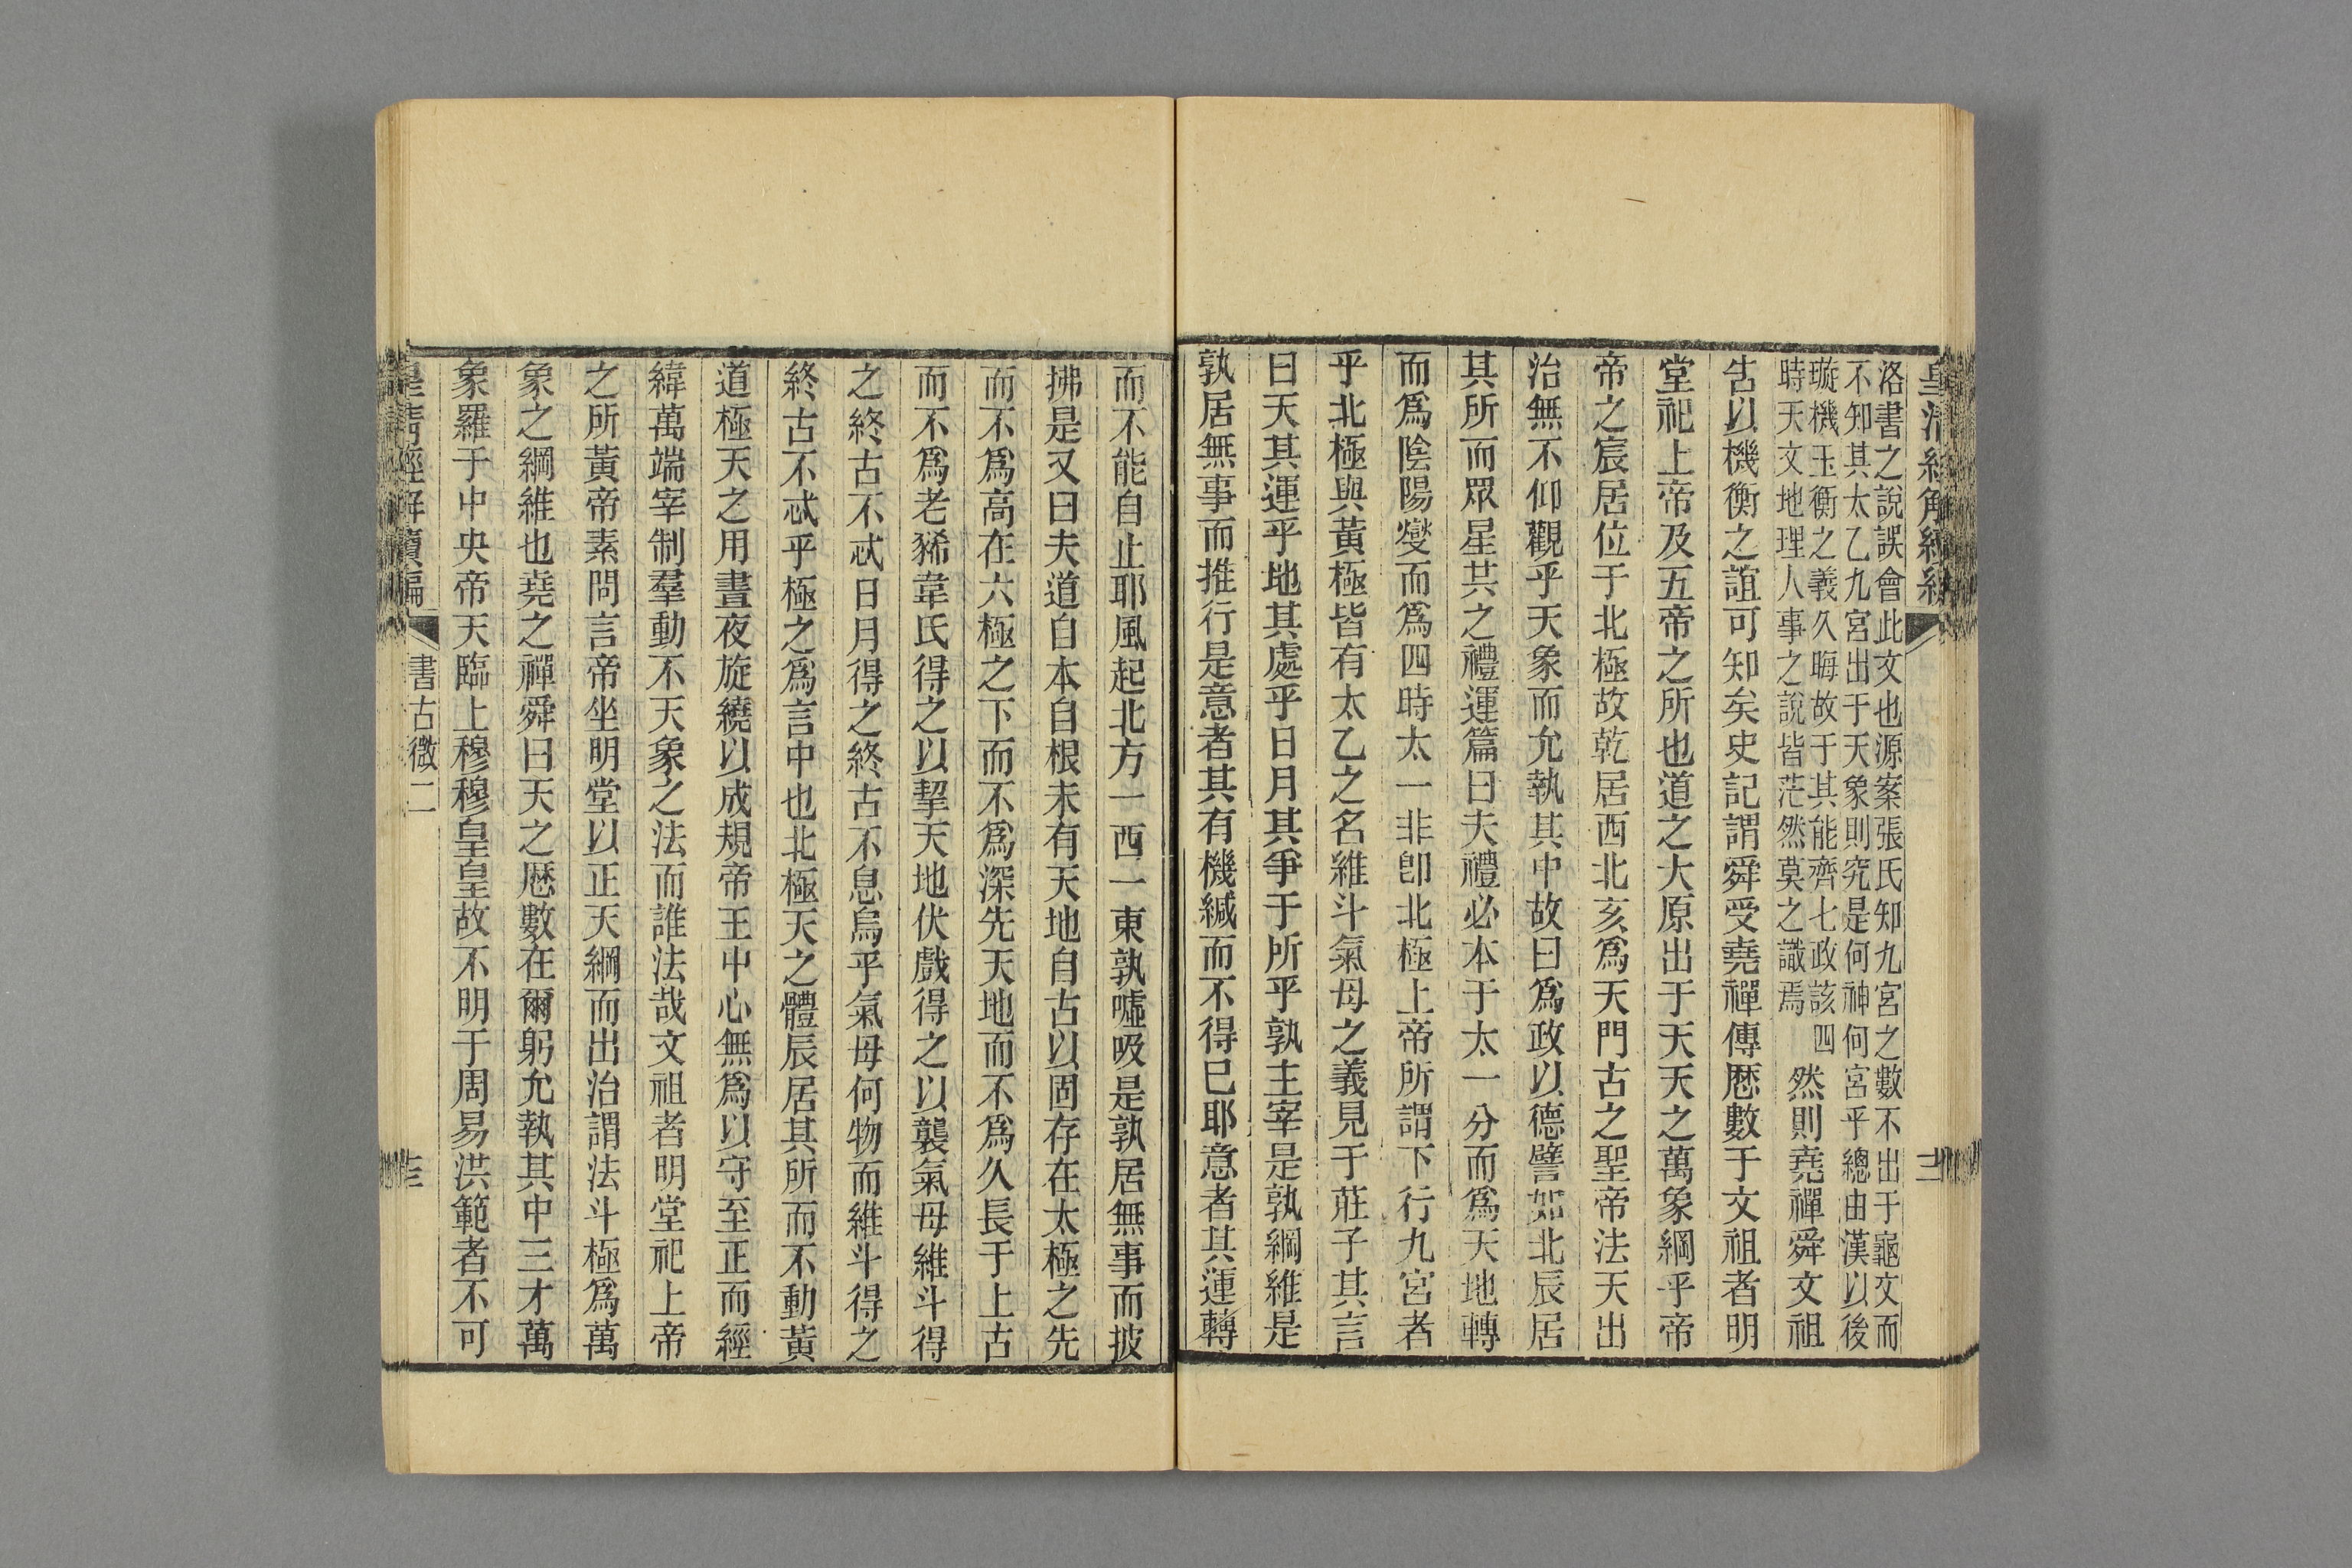 皇清經解續編
洛書之說誤會此文也源案張氏知九宮之數不出于龜文而
不知其太乙九宮出于天象則究是何神何宮乎總由漢以後
璇機玉衡之義久晦故于其能齊七政該四
時天文地理人事之說皆茫然莫之識焉
然則堯禪舜文祖
告以機衡之誼可知矣史記謂舜受堯禪傳歷數于文祖者明
堂祀上帝及五帝之所也道之大原出于天天之萬象綱乎帝
帝之宸居位于北極故乾居西北亥爲天門古之聖帝法天出
治無不仰觀乎天象而允執其中故曰爲政以德譬如北辰居
其所而眾星共之禮運篇曰夫禮必本于太一分而爲天地轉
而爲陰陽變而爲四時太一非卽北極上帝所謂下行九宮者
乎北極與黃極皆有太乙之名維斗氣母之義見于莊子其言
曰天其運乎地其處乎日月其爭于所乎孰主宰是孰綱維是
孰居無事而推行是意者其有機緘而不得已耶意者其運轉
而不能自止耶風起北方一西一東孰噓吸是孰居無事而披
拂是又曰夫道自本自根未有天地自古以固存在太極之先
而不爲高在六極之下而不爲深先天地而不爲久長于上古
而不爲老豨韋氏得之以挈天地伏戲得之以襲氣母維斗得
之終古不忒日月得之終古不息烏乎氣母何物而維斗得之
終古不忒乎極之爲言中也北極天之體辰居其所而不動黃
道極天之用晝夜旋繞以成規帝王中心無爲以守至正而經
緯萬端宰制羣動不天象之法而誰法哉文祖者明堂祀上帝
之所黃帝素問言帝坐明堂以正天綱而出治謂法斗極爲萬
象之綱維也堯之禪舜曰天之歷數在爾躬允執其中三才萬
象羅于中央帝天臨上穆穆皇皇故不明于周易洪範者不可
皇清經解續編
書古微二